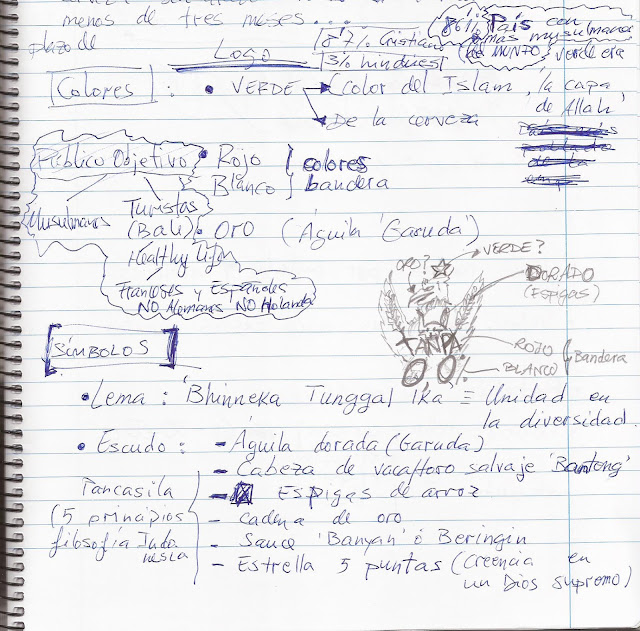 menos de tres meses...
plazo de
Logo
8'7% Cristianos
3% hinduest
86% País con
mas musulmanes
del MUNDO, verde era
Colores : • VERDE → Color del Islam, 'la capa
de Allah'
→ De la cerveza
Público Objetivo
Musulmanes
Turistas
(Bali)
Healthy Life
Franceses y Españoles
NO Alemanes NO Holanda
• Rojo
Blanco
colores
bandera
• ORO (Águila 'Garuda')
ORO?
VERDE?
DORADO
(Espigas)
TANPA
0'0%
ROJO
BLANCO
Bandera
SÍMBOLOS
• Lema : 'Bhinneka Tunggal Ika ≡ Unidad en
la diversidad.
• Escudo : - Águila dorada (Garuda)
- Cabeza de vaca/toro salvaje 'Banteng'
- Espigas de arroz
- cadena de oro
- Sauce 'Banyan' ó Beringin
- Estrella 5 puntas (Creencia en
un Dios supremo)
Pancasila
(5 principios
filosofía Indo
nesia